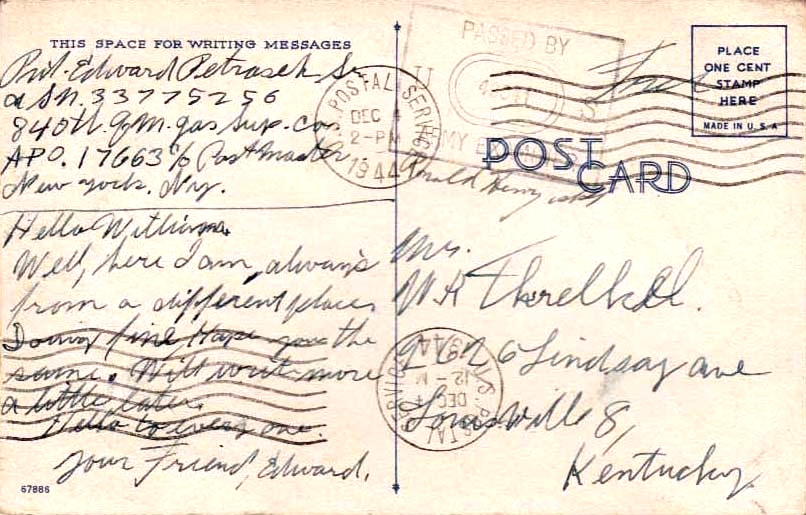 THIS SPACE FOR WRITING MESSAGES
Pvt. Edward Petrasek Sr.
a SN. 33775256
840th. Q.M. Gas Sup. Co.
APO. 17663 % Postmaster
New York. N.y.
Hello William.
Well, here I am, always
from a different place.
Doing fine Hope you the
same. Will write more
a little later.
Hello to everyone.
Your Friend, Edward.
67886
U.S. POSTAL SERVICE
DEC
2-PM
1944
PASSED BY
U S
ARMY EXAMINER
Free
PLACE
ONE CENT
STAMP
HERE
MADE IN U.S.A
POST
CARD
Ronald Henry
Mr.
W R Threlkeld.
2626 Lindsay ave
Louisville 8,
Kentucky.
U.S. POSTAL SERVICE
DEC
12 M
1944